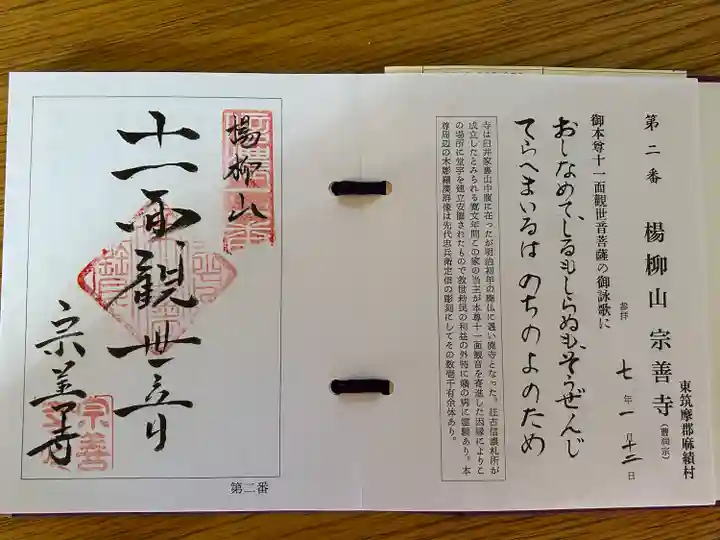 東筑摩郡麻績村
第二番　楊柳山　宗善寺（曹洞宗）
参拝　七年一月十二日
御本尊十一面觀世音菩薩の御詠歌に
おしなめて、しるもしらぬも、そうぜんじ
てらへまいるは　のちのよのため
寺は臼井家裏山中腹に在ったが明治初年の廃仏に遇い廃寺となった。往古信濃札所が
成立したとみられる寛文年間この家の当主が本尊十一面観音を寄進した因縁によりこ
の場所に堂宇を建立安置されたもので救世済民の利益の外特に
尊周辺の木彫羅漢群像は先代忠兵衛定信の彫刻にしてその数壱千有余体あり。
楊柳山
十一面觀世音
宗善寺
宗善
第二番